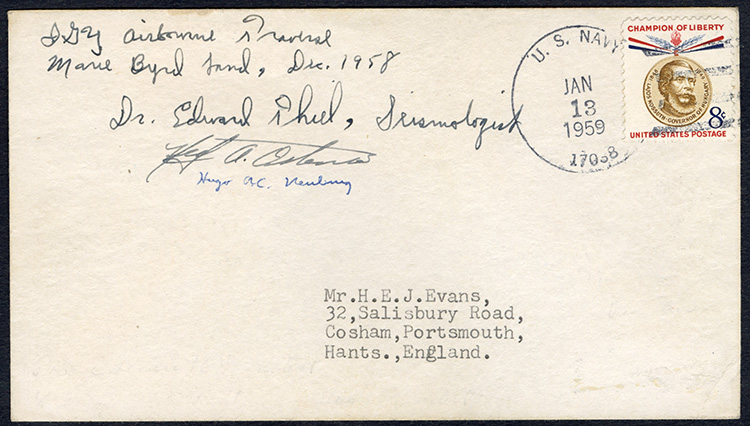 IGY Airborne Traverse
Marie Byrd Land, Dec. 1958
Dr. Edward Thiel, Seismologist
A. Ostenso
Hugo A.C. Neuburg
U. S. NAVY
JAN
13
1959
17038
CHAMPION OF LIBERTY
LAJOS KOSSUTH - GOVERNOR OF HUNGARY
8c
UNITED STATES POSTAGE
Mr.H.E.J.Evans,
32,Salisbury Road,
Cosham,Portsmouth,
Hants.,England.